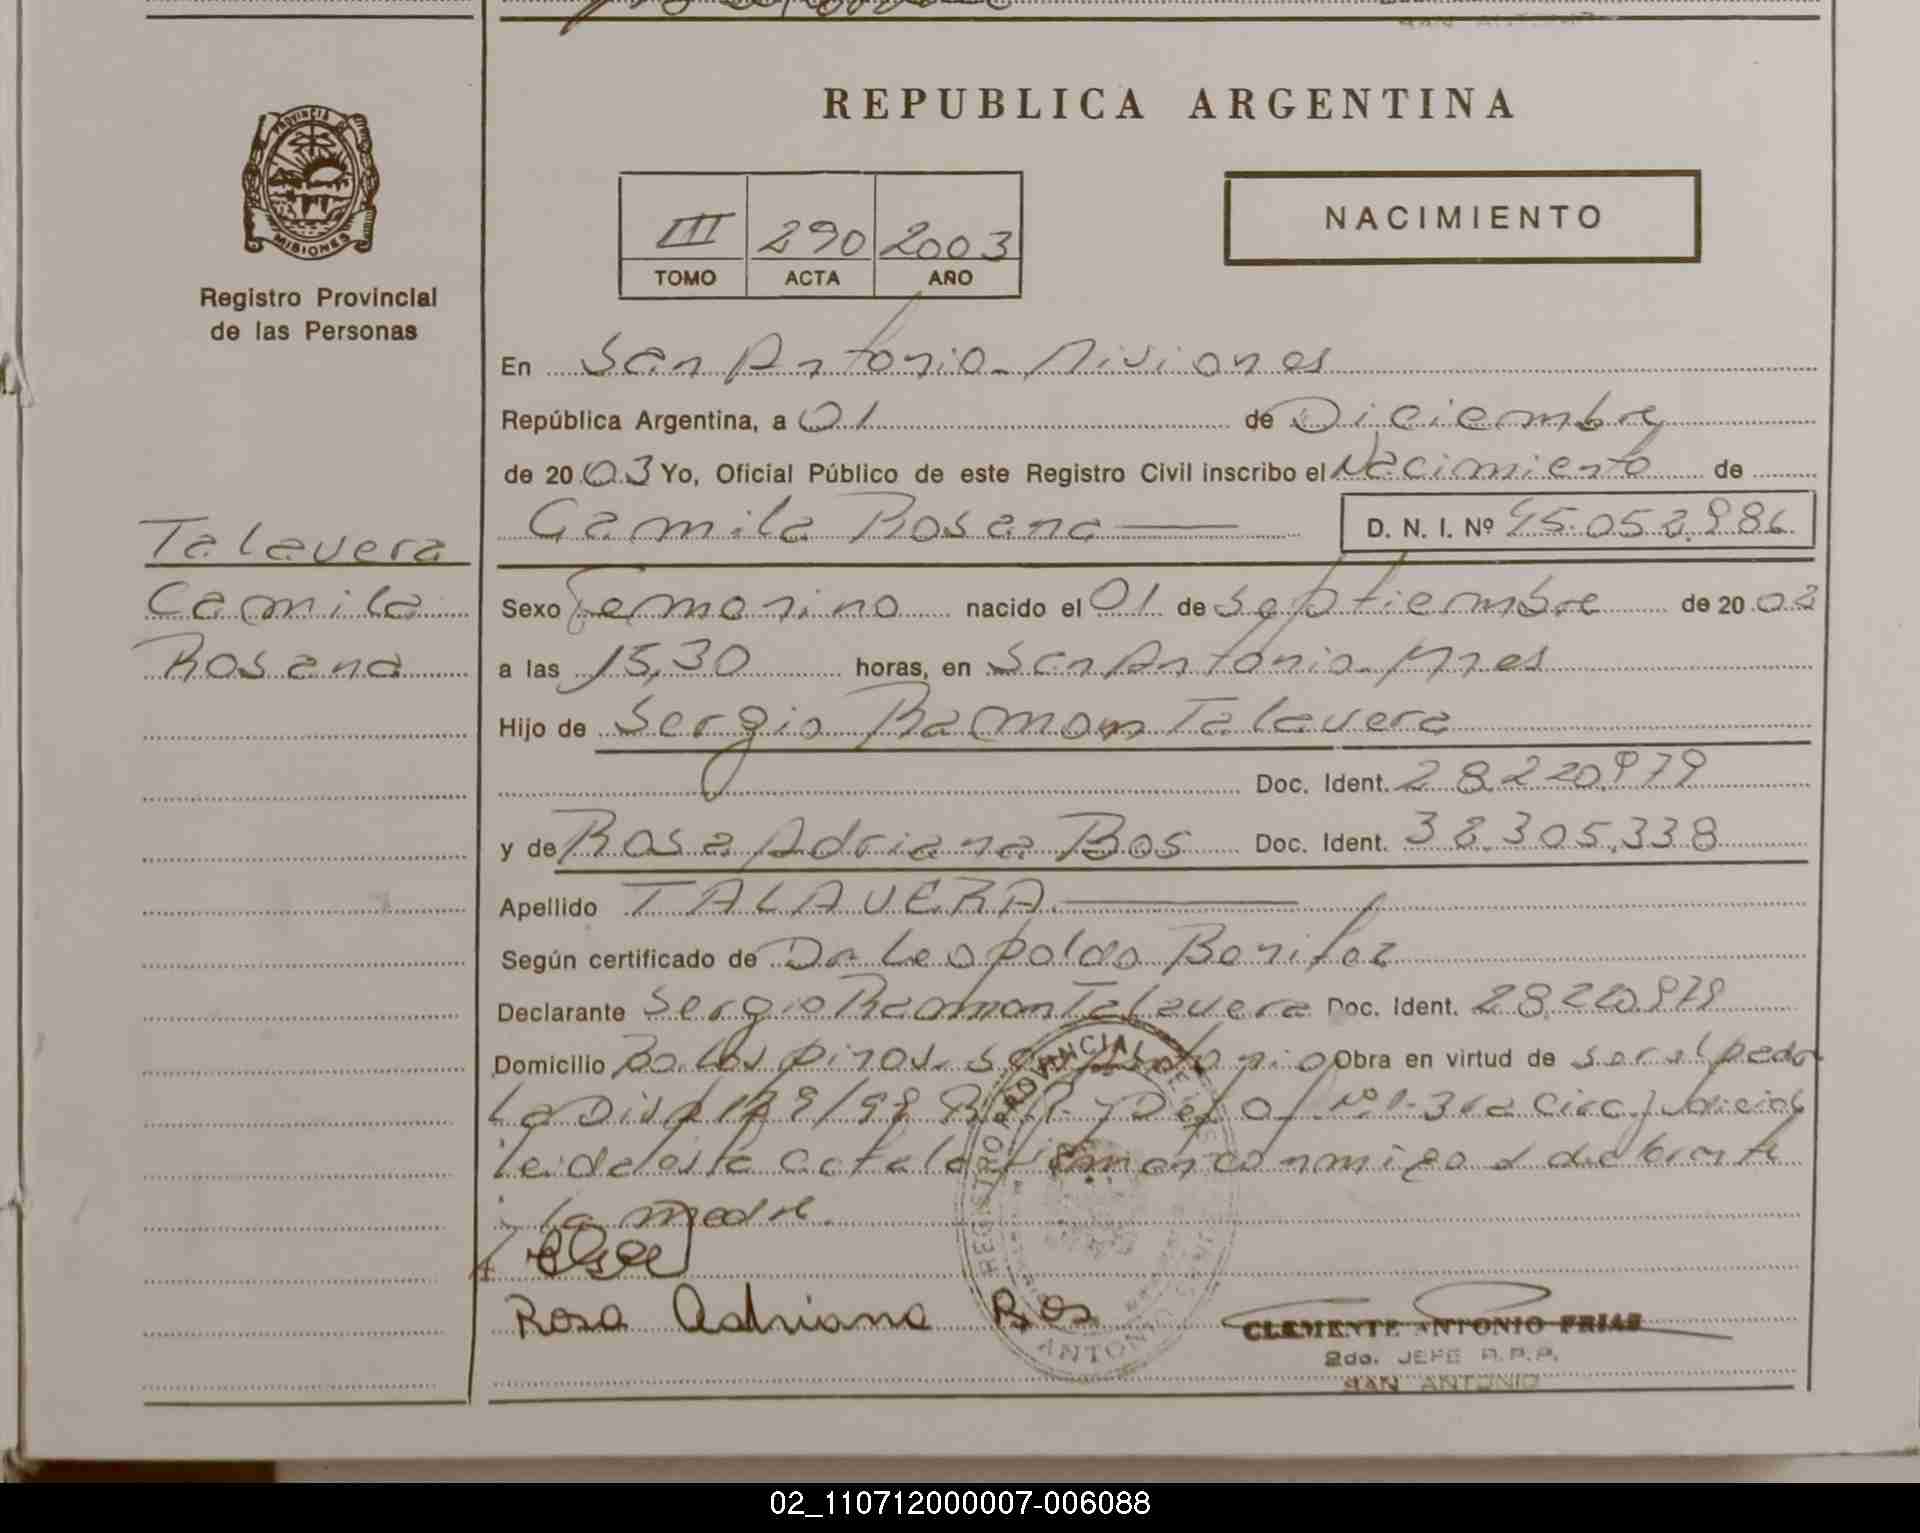 REPUBLICA ARGENTINA
PROVINCIA DE MISIONES
Registro Provincial
de las Personas
III 290 2003
TOMO ACTA AÑO
NACIMIENTO
En San Antonio - Misiones
República Argentina, a 01 de Diciembre
de 2003 Yo, Oficial Público de este Registro Civil inscribo el Nacimiento de
Camila Rosana D. N. I. Nº 45.052.986
Talavera
Camila
Rosana
Sexo Femenino nacido el 01 de Septiembre de 2003
a las 15,30 horas, en San Antonio - Mnes
Hijo de Sergio Ramon Talavera
Doc. Ident. 28.220.979
y de Rosa Adriana Bos Doc. Ident. 38.305.338
Apellido TALAVERA
Según certificado de Dr Leopoldo Benitez
Declarante Sergio Ramon Talavera Doc. Ident. 28.220.979
Domicilio Bo. Los pinos - San Antonio Obra en virtud de ser el padre
La Disp 199/98 Nº 1 - 3ra Circ. Judicial
leida esta acta la firman conmigo el declarante
y la madre.
Rosa Adriana Bos
REGISTRO PROVINCIAL DE LAS
SAN ANTONIO
CLEMENTE ANTONIO FRIAS
2do. JEFE R.P.P.
SAN ANTONIO
02_110712000007-006088